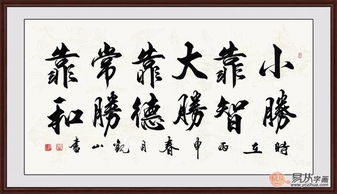 小勝
靠智
大勝
靠德
常勝
靠和
時在丙申春月觀山書
易从字画
www.yczihua.com